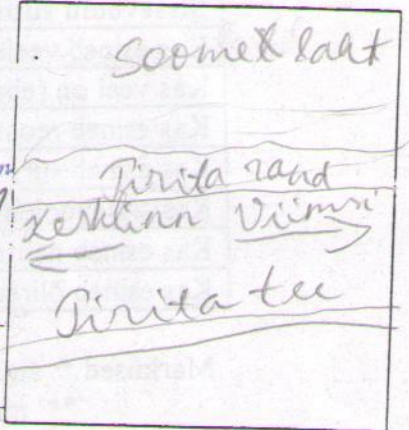 Soome laht
Pirita rand
Kesklinn Viimsi
Pirita tee